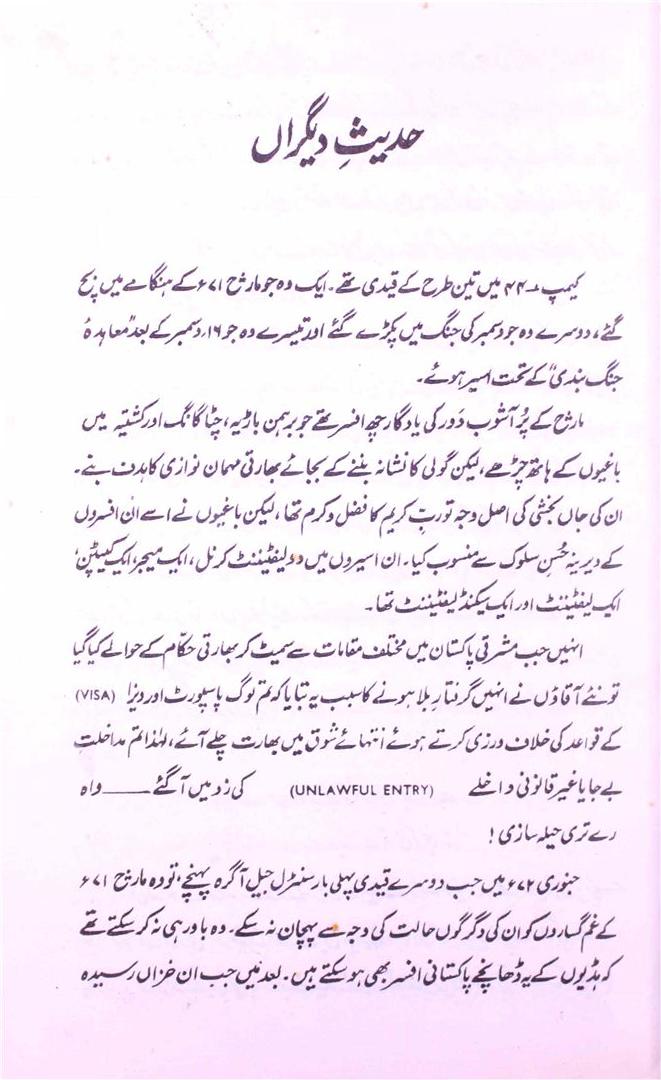 حدیثِ دیگراں
کیمپ ۴۴ میں تین طرح کے قیدی تھے۔ ایک وہ جو مارچ ۷۱ء کے ہنگامے میں بچ
گئے، دوسرے وہ جو دسمبر کی جنگ میں پکڑے گئے اور تیسرے وہ جو ۱۶ دسمبر کے بعد "معاہدۂ
جنگ بندی" کے تحت اسیر ہوئے۔
مارچ کے پُر آشوب دَور کی یادگار چھ افسر تھے جو برہمن باڑیہ، چٹاگانگ اور کشتیہ میں
باغیوں کے ہاتھ چڑھے، لیکن گولی کا نشانہ بننے کے بجائے بھارتی مہمان نوازی کا ہدف بنے۔
ان کی جاں بخشی کی اصل وجہ تو ربِّ کریم کا فضل و کرم تھا، لیکن باغیوں نے اسے ان افسروں
کے دیرینہ حُسنِ سلوک سے منسوب کیا۔ ان اسیروں میں دو لیفٹیننٹ کرنل، ایک میجر، ایک کیپٹن،
ایک لیفٹیننٹ اور ایک سیکنڈ لیفٹیننٹ تھا۔
انہیں جب مشرقی پاکستان میں مختلف مقامات سے سمیٹ کر بھارتی حکّام کے حوالے کیا گیا
تو نئے آقاؤں نے انہیں گرفتارِ بلا ہونے کا سبب یہ بتایا کہ تم لوگ پاسپورٹ اور ویزا (VISA)
کے قواعد کی خلاف ورزی کرتے ہوئے انتہائے شوق میں بھارت چلے آئے، لہٰذا تم مداخلتِ
بے جا یا غیر قانونی داخلے (UNLAWFUL ENTRY) کی زد میں آ گئے ــــــ واہ
رے تری حیلہ سازی!
جنوری ۷۲ء میں جب دوسرے قیدی پہلی بار سنٹرل جیل آگرہ پہنچے، تو وہ مارچ ۷۱ء
کے غم گساروں کو ان کی دگرگوں حالت کی وجہ سے پہچان نہ سکے۔ وہ باور ہی نہ کر سکتے تھے
کہ ہڈیوں کے یہ ڈھانچے پاکستانی افسر بھی ہو سکتے ہیں۔ بعد میں جب ان خزاں رسیدہ